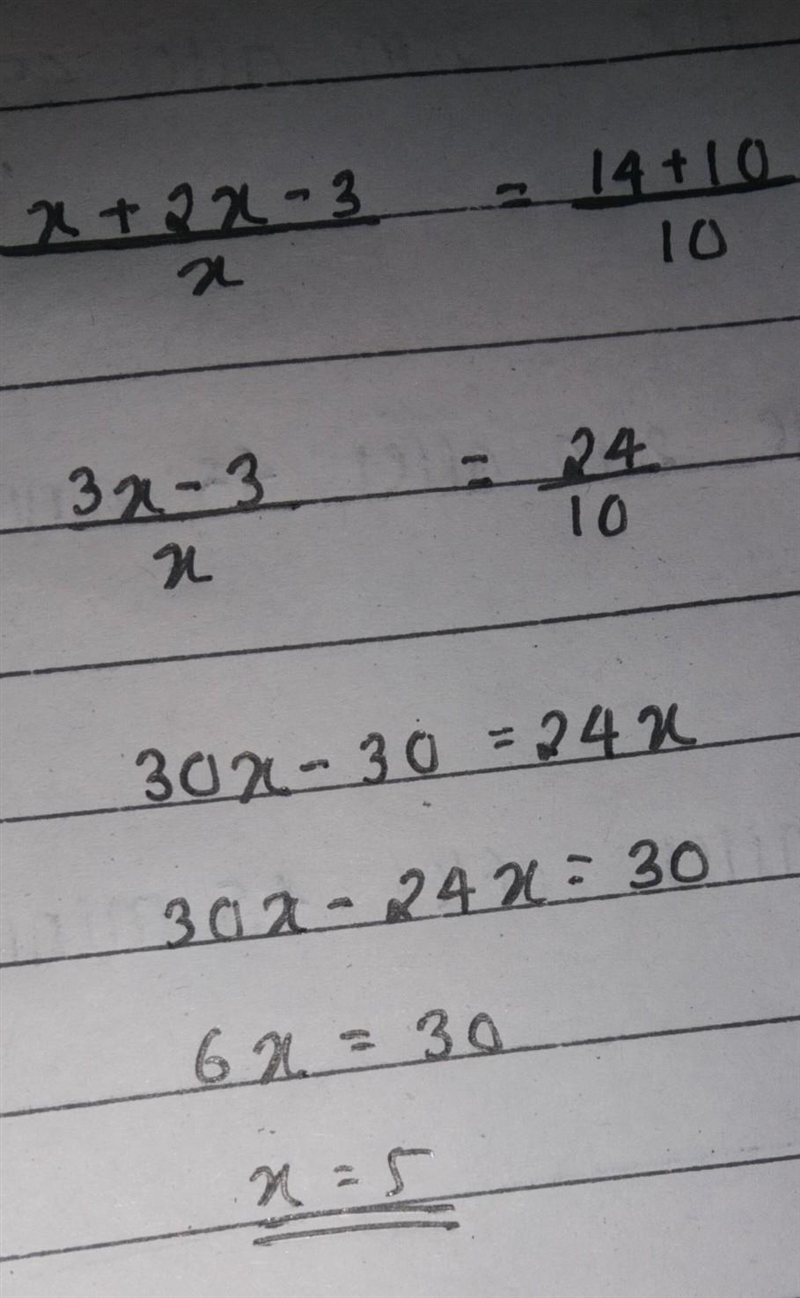 x + 2x - 3 = 14 + 10
x 10
3x - 3 = 24
x 10
30x - 30 = 24x
30x - 24x = 30
6x = 30
x = 5